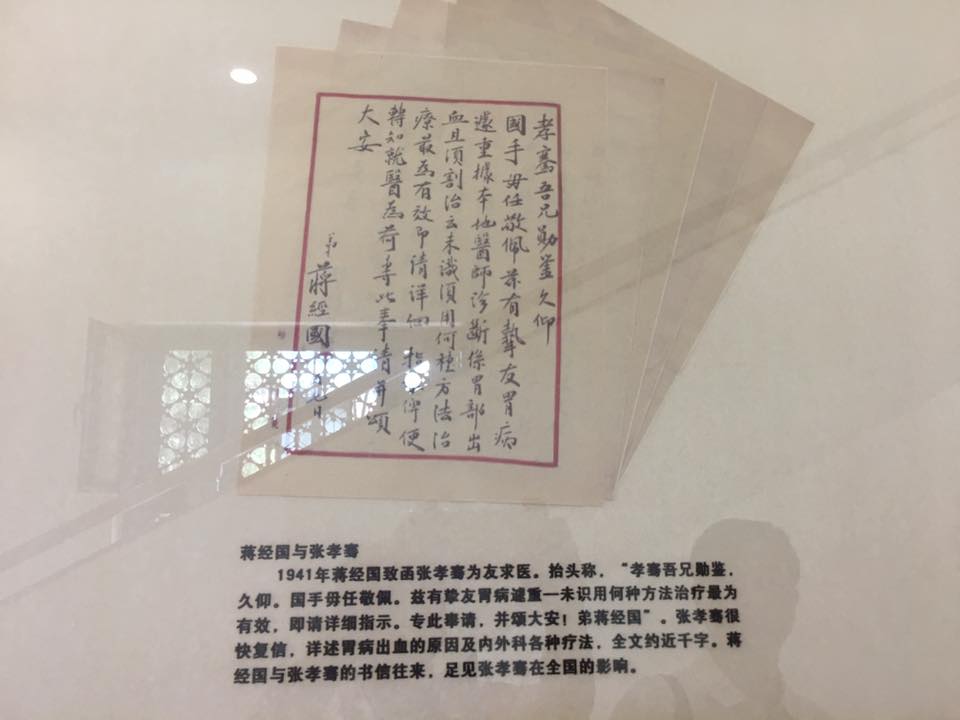 孝騫吾兄勛鉴久仰
國手毋任敬佩茲有摯友胃病
遽重據本地醫師診斷係胃部出
血且須割治云未識須用何種方法治
療最為有效即請詳細指示俾便
轉知就醫為荷專此奉請并頌
大安
弟蔣經國
蒋经国与张孝骞
1941年蒋经国致函张孝骞为友求医。抬头称，“孝骞吾兄勋鉴，
久仰。国手毋任敬佩。兹有挚友胃病遽重一未识用何种方法治疗最为
有效，即请详细指示。专此奉请，并颂大安！弟蒋经国”。张孝骞很
快复信，详述胃病出血的原因及内外科各种疗法，全文约近千字。蒋
经国与张孝骞的书信往来，足见张孝骞在全国的影响。